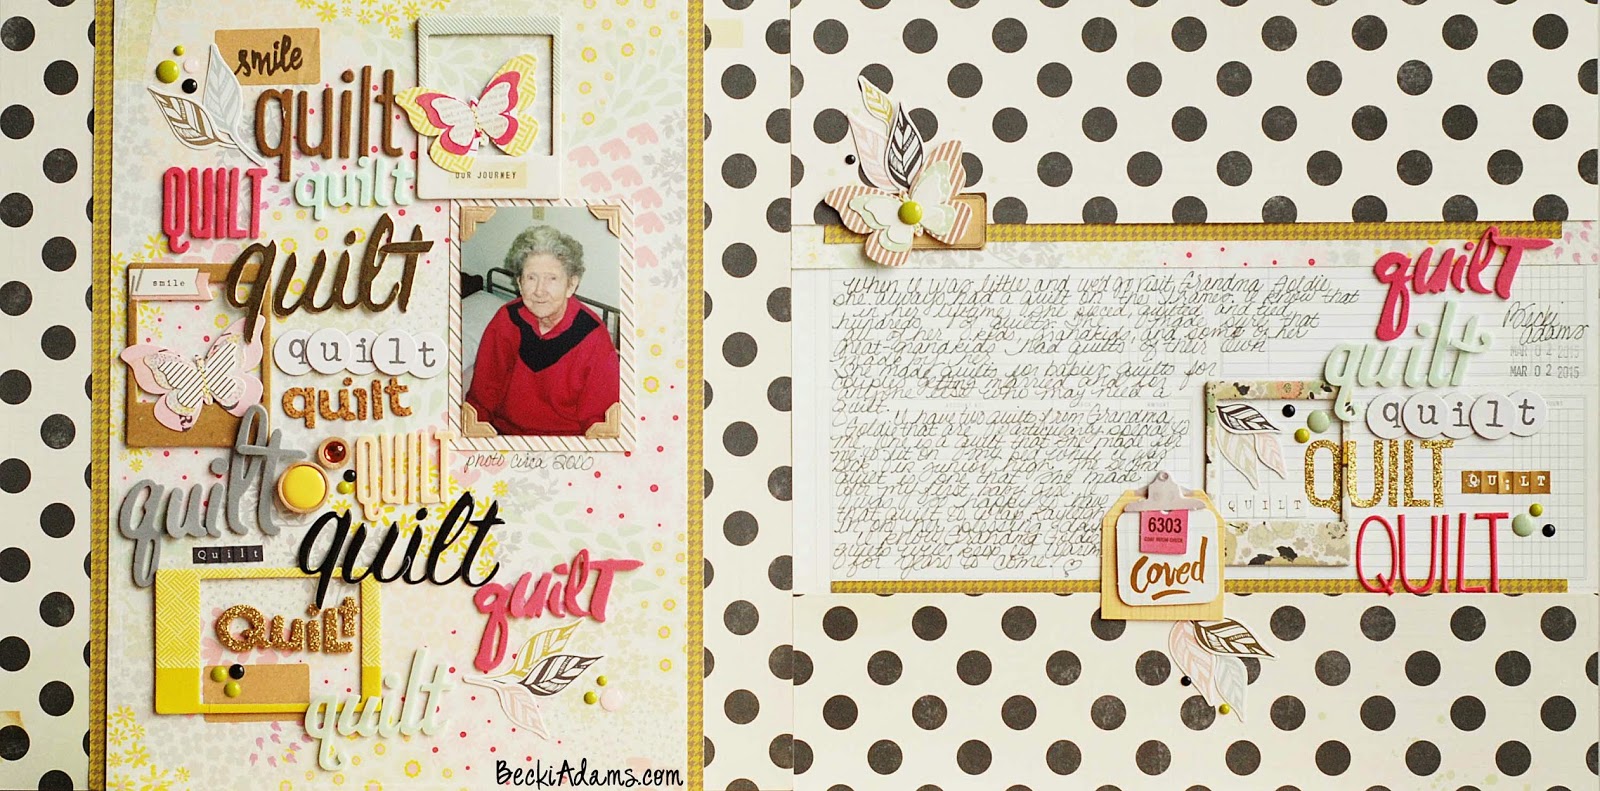 smile
quilt
QUILT
quilt
OUR JOURNEY
quilt
smile
quilt
quilt
photo circa 2000
quilt
QUILT
Quilt
quilt
QUiLt
quilt
quilt
BeckiAdams.com
When I was little and we'd go visit Grandma Goldie
she always had a quilt on the frames. I know that
in her lifetime she pieced, quilted and tied
hundreds of quilts. She made sure that
all of her kids, grandkids, and some of her
great-grandkids had quilts of their own
made by her.
She made quilts for babies, quilts for
couples getting married and for
anyone else who may need a
quilt.
I have two quilts from Grandma
Goldie that are
me. One is a quilt that she made for
me to put on my bed while I was
back in junior high. The second
quilt is one that she made
for my first baby
that quilt
I know Grandma Goldie's
quilts will keep us warm
for years to come! ♡
quilt
Becki
Adams
MAR 02 2015
MAR 02 2015
quilt
quilt
QUILT
QUiLT
QUILT
QUILT
6303
Loved